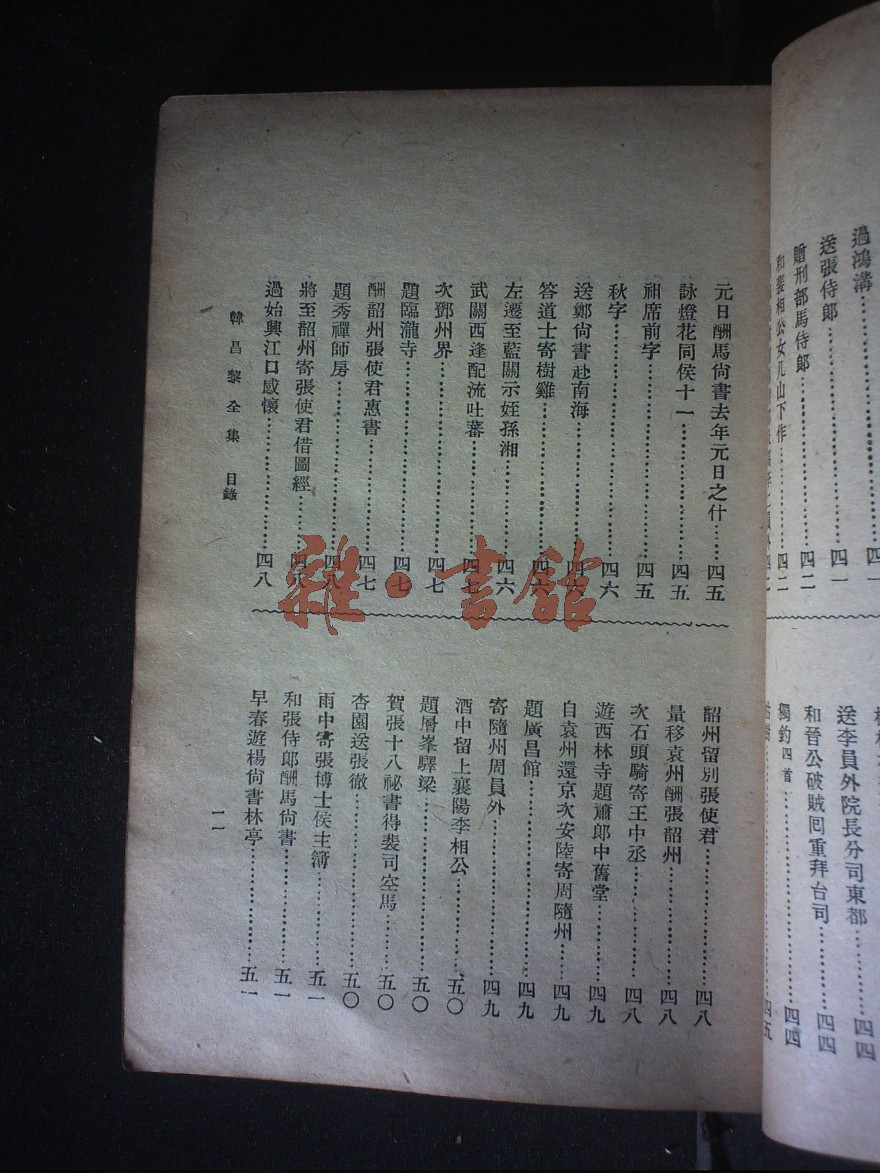 過鴻溝……四一
送張侍郎……四一
贈刑部馬侍郎……四二
和裴相公女几山下作……四二
送李員外院長分司東都……四四
和晉公破賊回重拜台司……四四
獨釣四首……四四
四五
元日酬馬尙書去年元日之什……四五
詠燈花同侯十一……四五
祖席前字……四五
秋字……四六
送鄭尙書赴南海……四六
答道士寄樹雞……四六
左遷至藍關示姪孫湘……四六
武關西逢配流吐蕃……四七
次鄧州界……四七
題臨瀧寺……四七
酬韶州張使君惠書……四七
題秀禪師房……四八
將至韶州寄張使君借圖經……四八
過始興江口感懷……四八
韶州留別張使君……四八
量移袁州酬張韶州……四八
次石頭騎寄王中丞……四八
遊西林寺題蕭郎中舊堂……四九
自袁州還京次安陸寄周隨州……四九
題廣昌館……四九
寄隨州周員外……四九
酒中留上襄陽李相公……五〇
題層峯驛梁……五〇
賀張十八祕書得裴司空馬……五〇
杏園送張徹……五〇
雨中寄張博士侯主簿……五一
和張侍郎酬馬尙書……五一
早春遊楊尙書林亭……五一
韓昌黎全集 目錄
一一
雜·書館